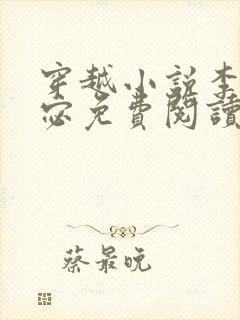 穿越小說李
宓免費閱讀
蔡最晚